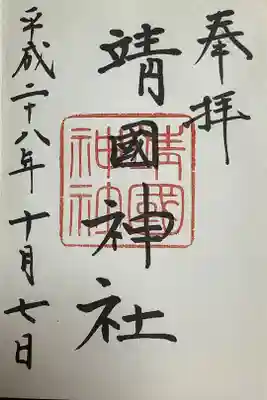 奉拝
靖國神社
平成二十八年十月七日
靖國
神社